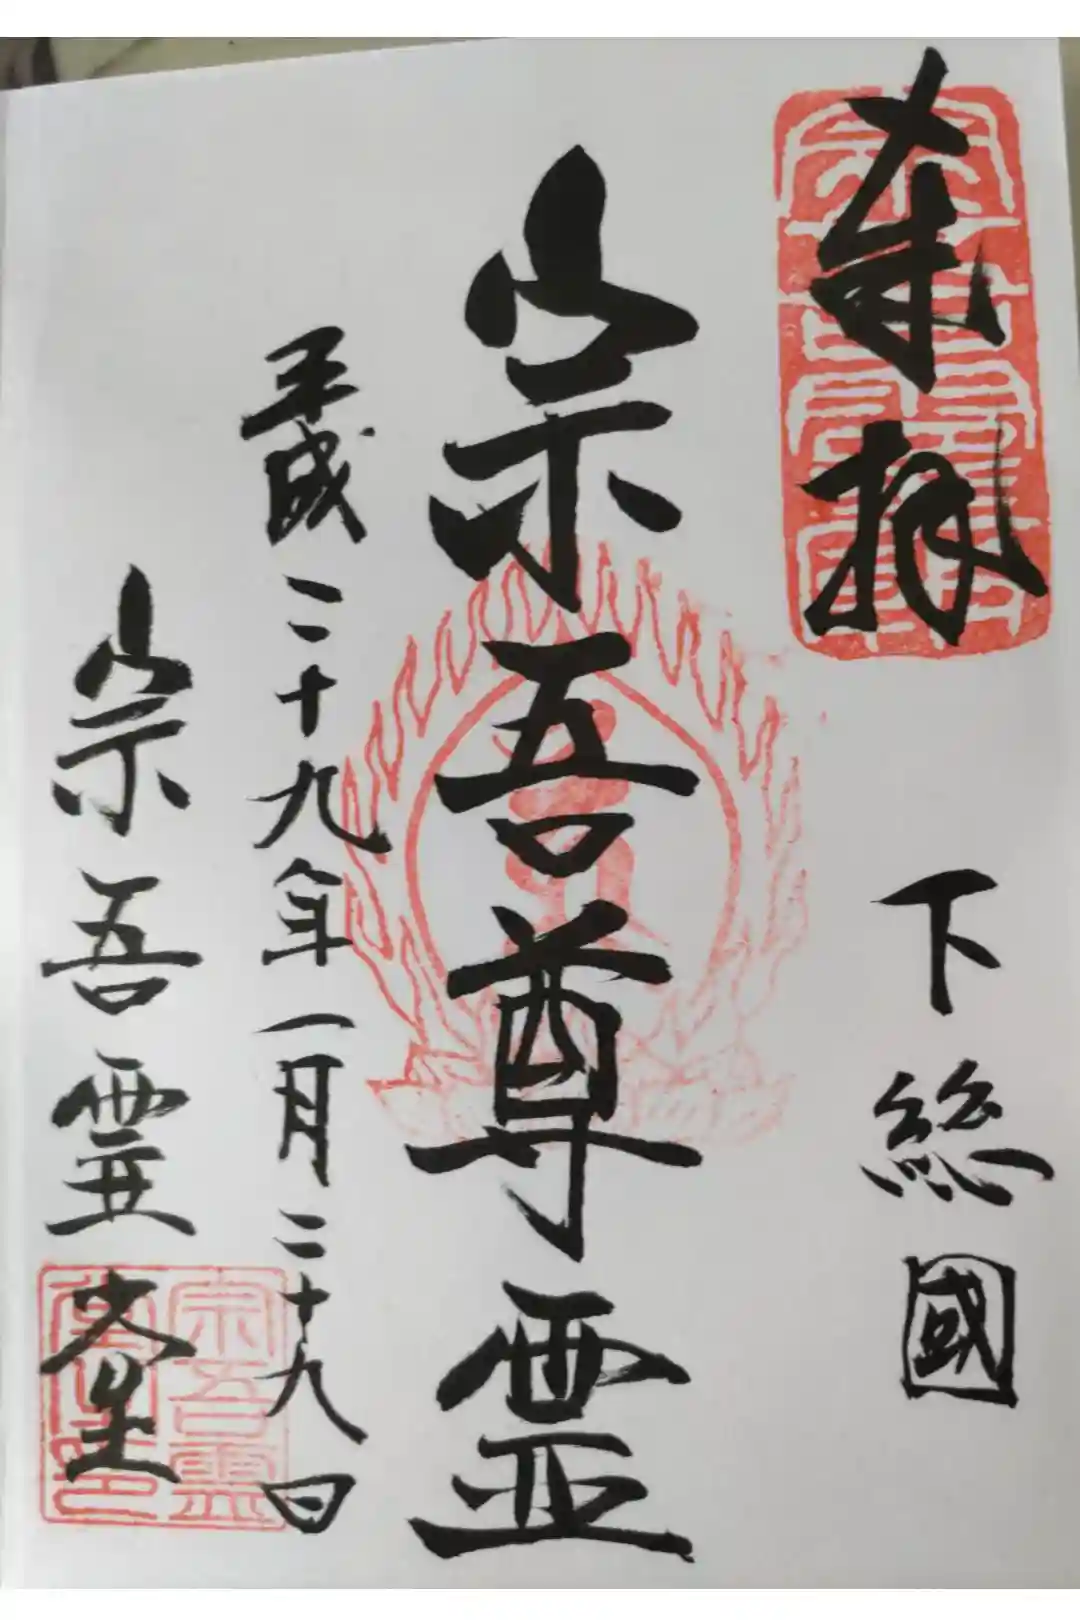 奉拝
下総國
宗吾尊霊
平成二十九年一月二十九日
宗吾霊堂
宗吾霊
堂之印